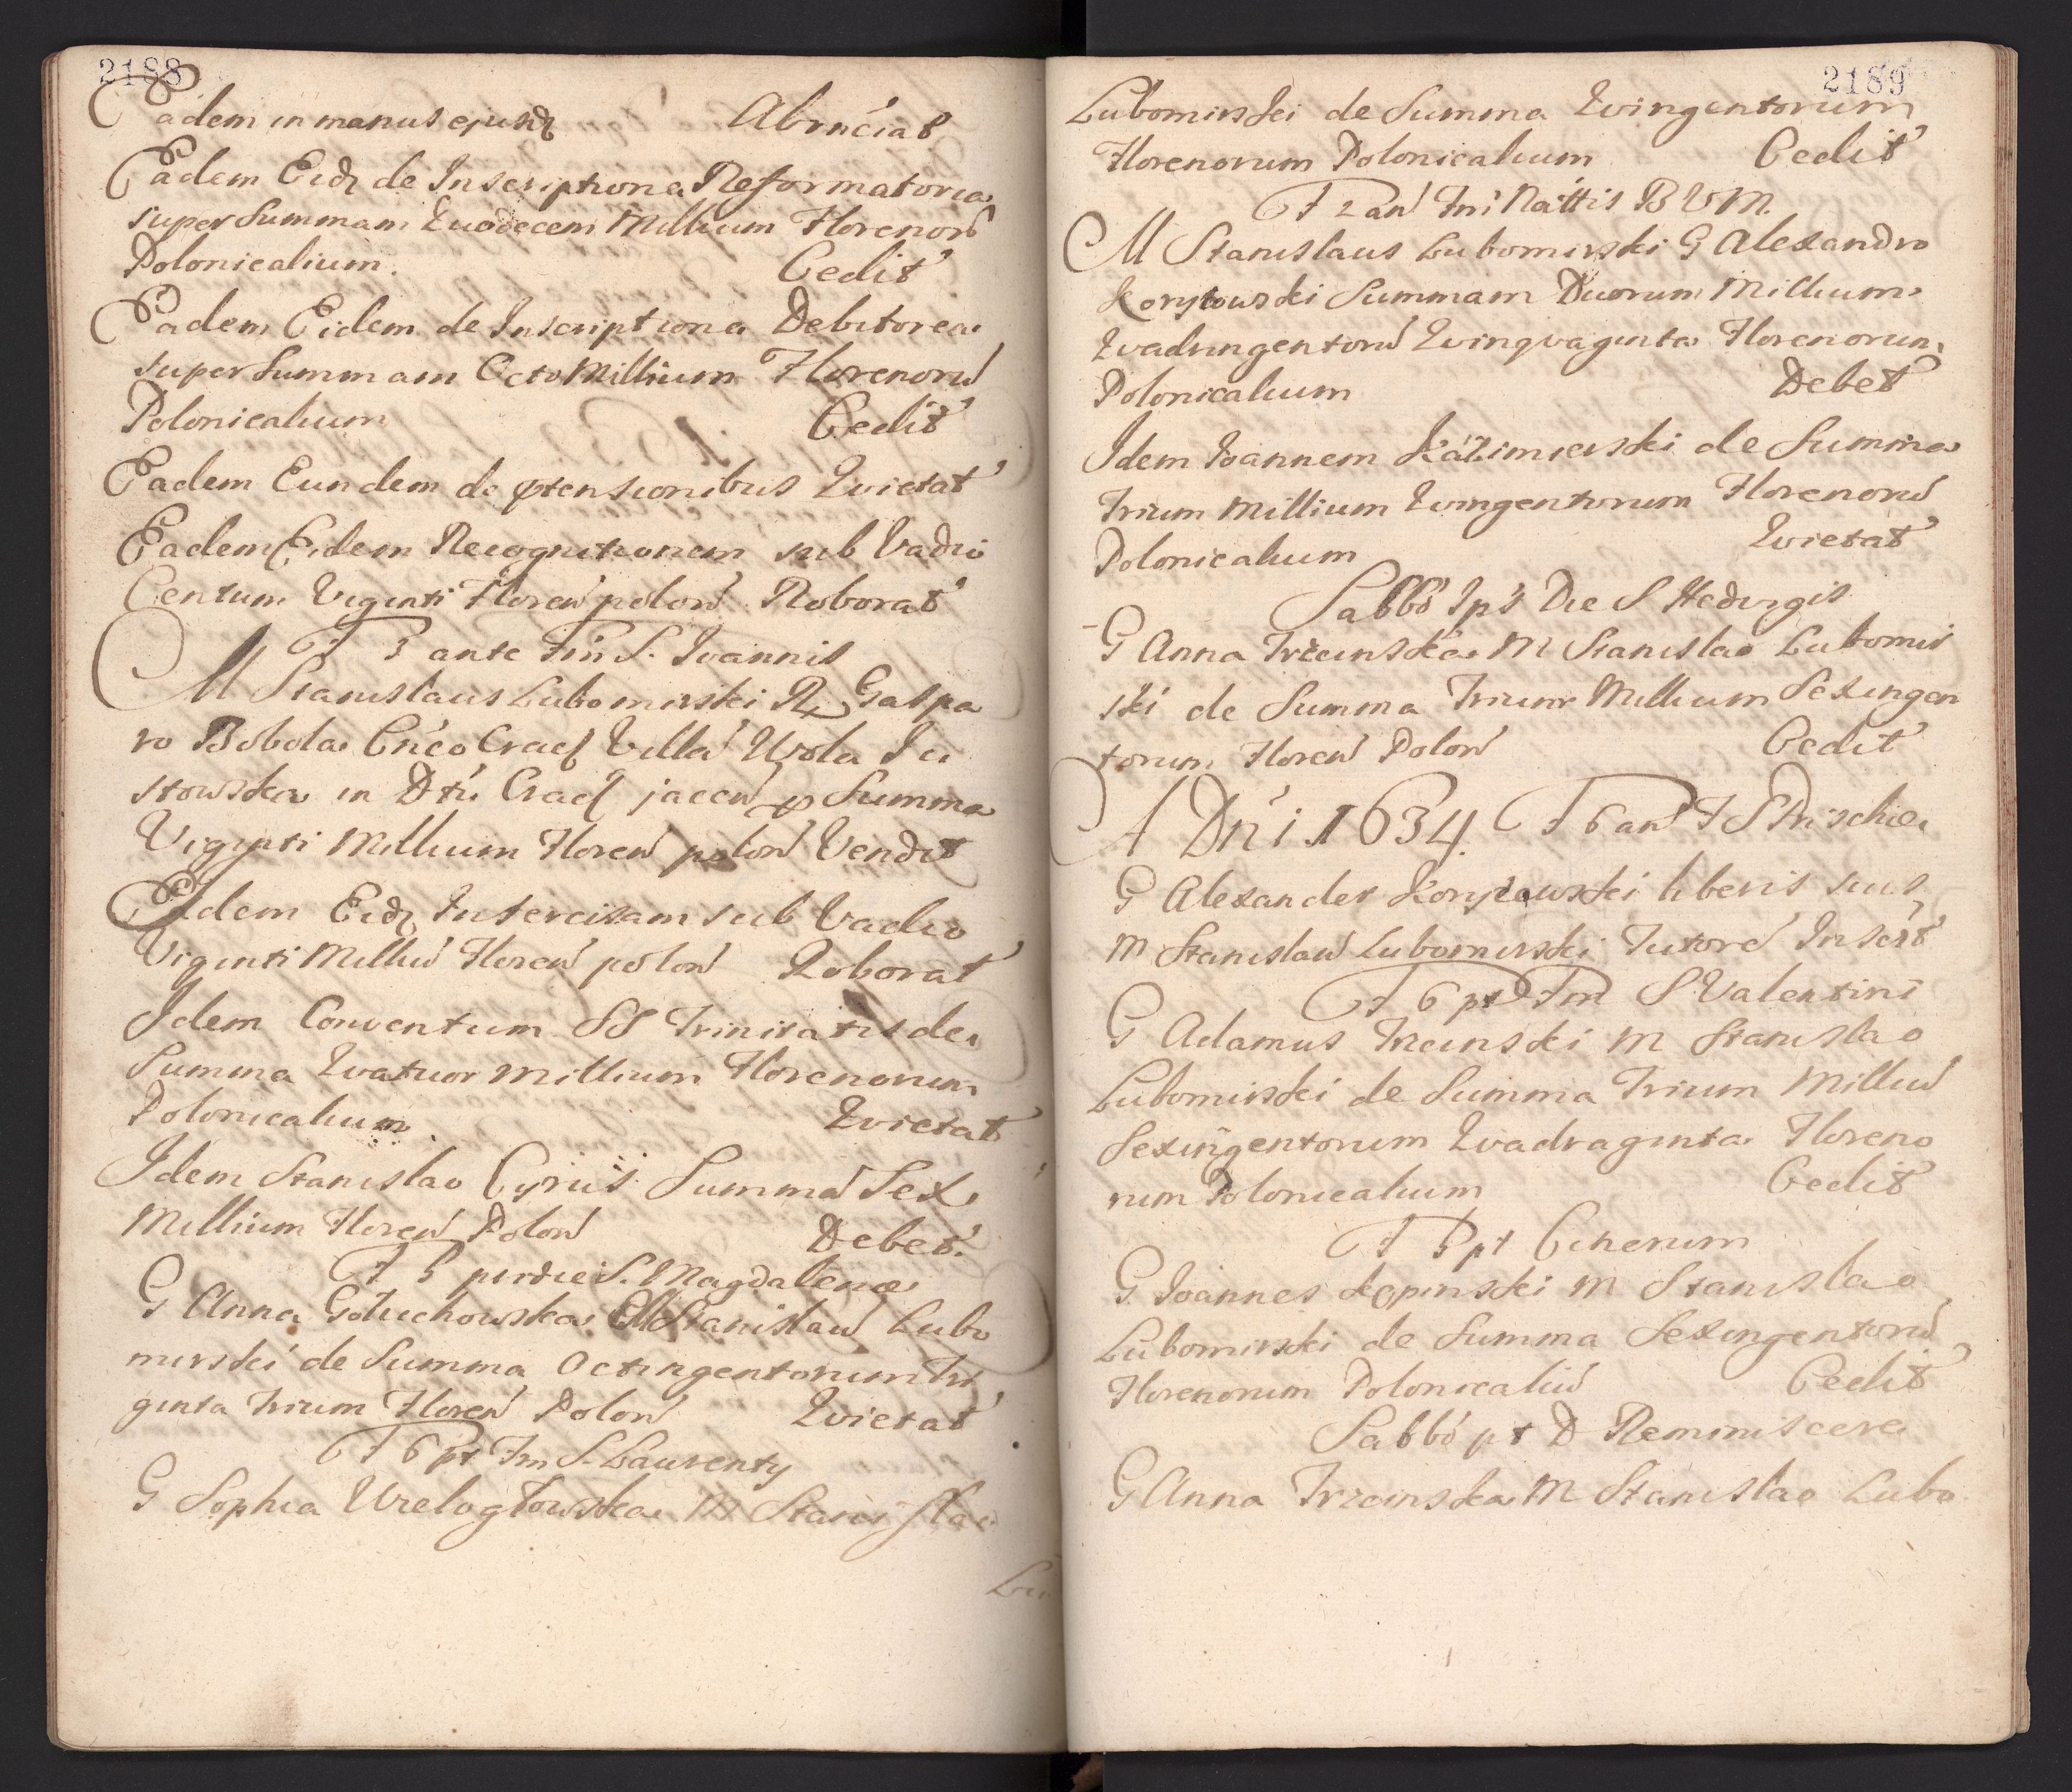 2188
Eadem in manus ejusd Abrnciat
Eadem Eidq de Inscriptione Reformatoria
super Summam Duodecem Millium Florenorū
Polonicalium. Cedit
Eadem Eidem de Inscriptione Debitorea
super Summam Octo Millium Florenorū
Polonicalium Cedit
Eadem Eundem de ptensionibus Qvietat
Eadem Eidem Recognitionem sub Vadio
Centum Viginti Floren polon Roborat
F 3 ante Fm S. Ioannis
M Stanislaus Lubomirski R Gaspa
ro Bobola Cnco Cracȝ Villa Wola Iu
stowska in Dtu Cracȝ jacen p Summa
Viginti Millium Floren polon Vendit
Idem Eidq Intercisam sub Vadio
Viginti Milliū Floren polon Roborat
Idem Conventum SS Trinitatis de
Summa Qvatuor Millium Florenorum
Polonicalium Qvietat
Idem Stanislao Cyrus Summā Sex
Millium Floren Polon Debet.
F 5 pridie S. Magdalenæ
G Anna Gołuchowska M Stanislaū Lubo
mirski de Summa Octingentorum Tri
ginta Trium Floren Polon Qvietat
F 6 pt Fm S. Laurenty
G Sophia Wielogłowska M Stanislao
Lu
2189
Lubomirski de Summa Qvingentorum
Florenorum Polonicalium Cedit
F 2 an Fm Nattis B V M.
M Stanislaus Lubomirski G Alexandro
Korytowski Summam Duorum Millium
Qvadringentorū Qvinqvaginta Florenorum
Polonicalium Debet
Idem Ioannem Kazimierski de Summa
Trium Millium Qvingentorum Florenorū
Polonicalium Qvietat
Sabbo Ips Die S Hedvigis
G Anna Trzcinska M Stanislao Lubomir
ski de Summa Trium Millium Sexingen
torum Floren Polon Cedit
A Dni 1634. F 6 an F S Prischæ
G Alexander Korytowski liberis suis
M Stanislaū Lubomirski Tutorē Inscrt
F 6 pt Fm S Valentini
G Adamus Trzcinski M Stanislao
Lubomirski de Summa Trium Milliū
Sexingentorum Qvadraginta Floreno
rum Polonicalium Cedit
F 5 pt Cinerum
G. Ioannes Kępinski M Stanislao
Lubomirski de Summa Sexingentorū
Florenorum Polonicaliū Cedit
Sabbo pt D Reminiscere
G Anna Trzcinska M Stanislao Lubo